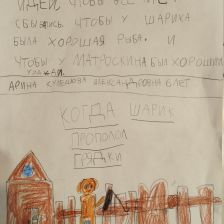 ИДЕИ ЧТОБЫ ВСЕ
СБЫВАЛИСЬ. ЧТОБЫ У ШАРИКА
БЫЛА ХОРОШАЯ РЫБА. И
ЧТОБЫ У МАТРОСКИНА БЫЛ ХОРОШИЙ
УРАЖАЙ.
АРИНА КУЛЕШОВА АЛЕКСАНДРОВНА 6 ЛЕТ
КОГДА ШАРИК
ПРОПОЛОЛ
ГРЯДКИ